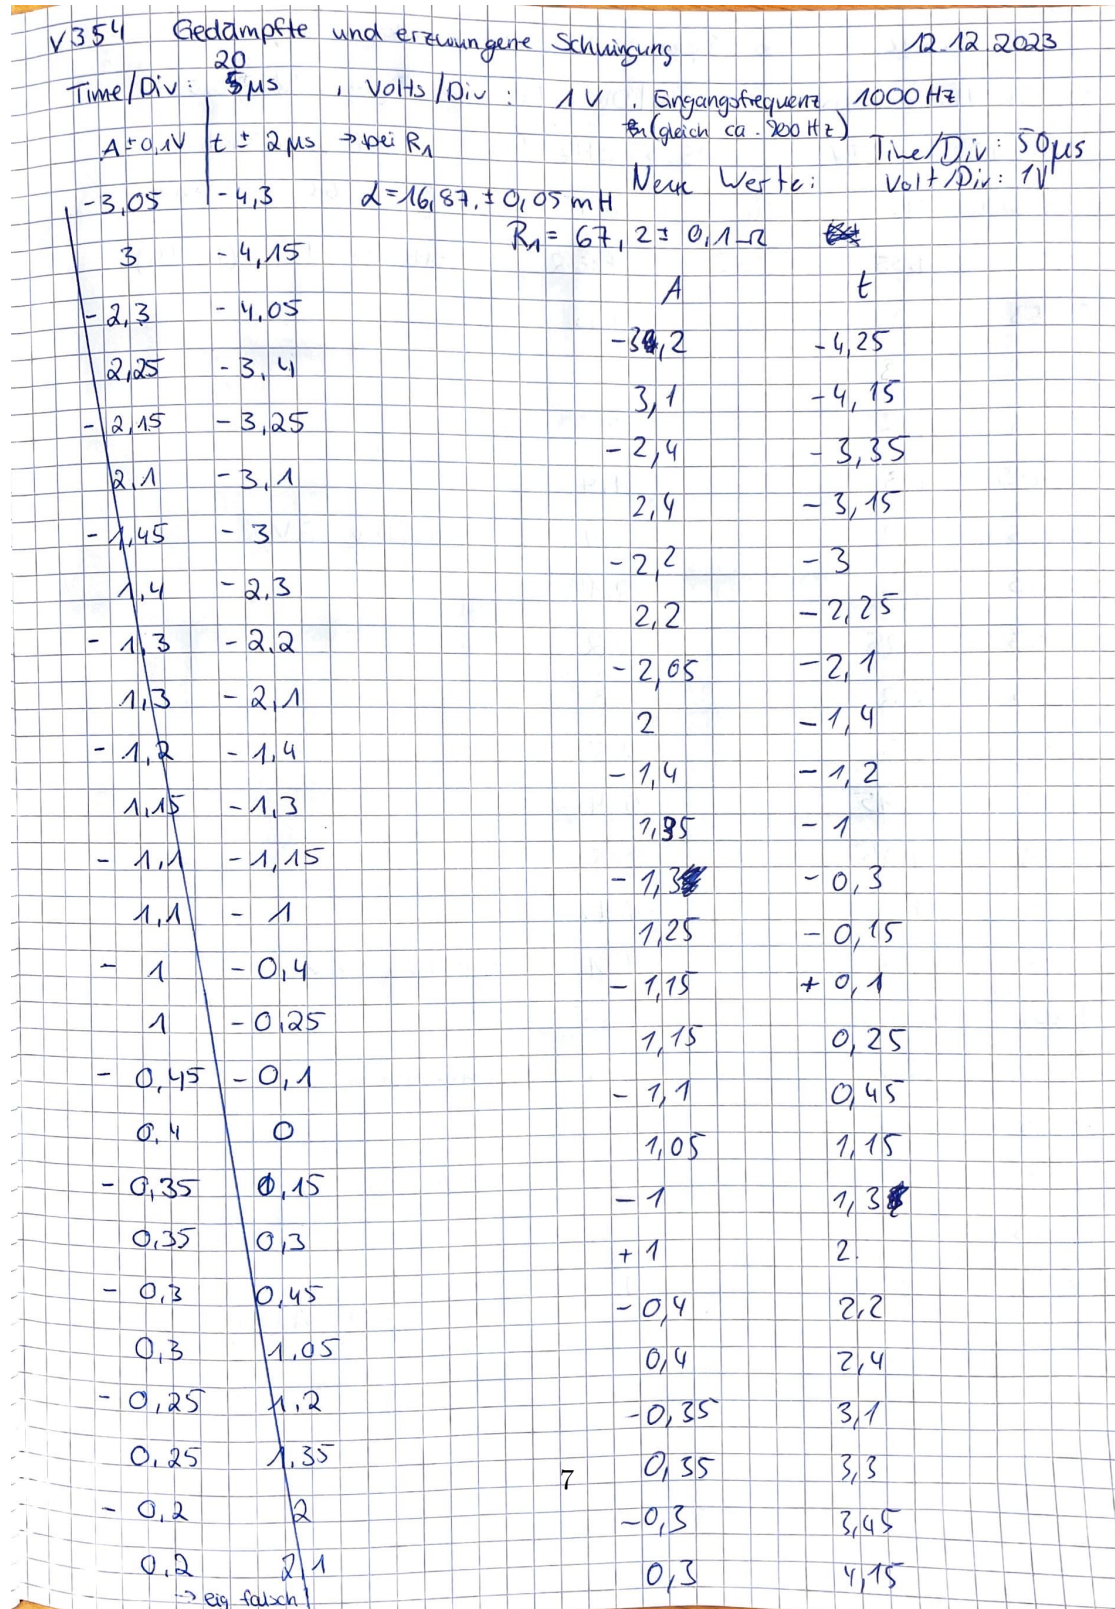 V354 Gedämpfte und erzwungene Schwingung 12.12.2023
20
Time/Div: 5µs , Volts/Div: 1V , Eingangsfrequenz 1000 Hz
(gleich ca. 900 Hz)
A ± 0,1V t ± 2µs → bei R1
Time/Div: 50µs
Neue Werte: Volt/Div: 1V
L = 16,87 ± 0,05 mH
R1 = 67,2 ± 0,1 Ω
-3,05 -4,3
3 -4,15
-2,3 -4,05
2,25 -3,4
-2,15 -3,25
2,1 -3,1
-1,45 -3
1,4 -2,3
-1,3 -2,2
1,3 -2,1
-1,2 -1,4
1,15 -1,3
-1,1 -1,15
1,1 -1
-1 -0,4
1 -0,25
-0,45 -0,1
0,4 0
-0,35 0,15
0,35 0,3
-0,3 0,45
0,3 1,05
-0,25 1,2
0,25 1,35
-0,2 2
0,2 2,1
→ eig falsch!
A t
-3,2 -4,25
3,1 -4,15
-2,4 -3,35
2,4 -3,15
-2,2 -3
2,2 -2,25
-2,05 -2,1
2 -1,4
-1,4 -1,2
1,35 -1
-1,3 -0,3
1,25 -0,15
-1,15 +0,1
1,15 0,25
-1,1 0,45
1,05 1,15
-1 1,3
+1 2
-0,4 2,2
0,4 2,4
-0,35 3,1
0,35 3,3
-0,3 3,45
0,3 4,15
7